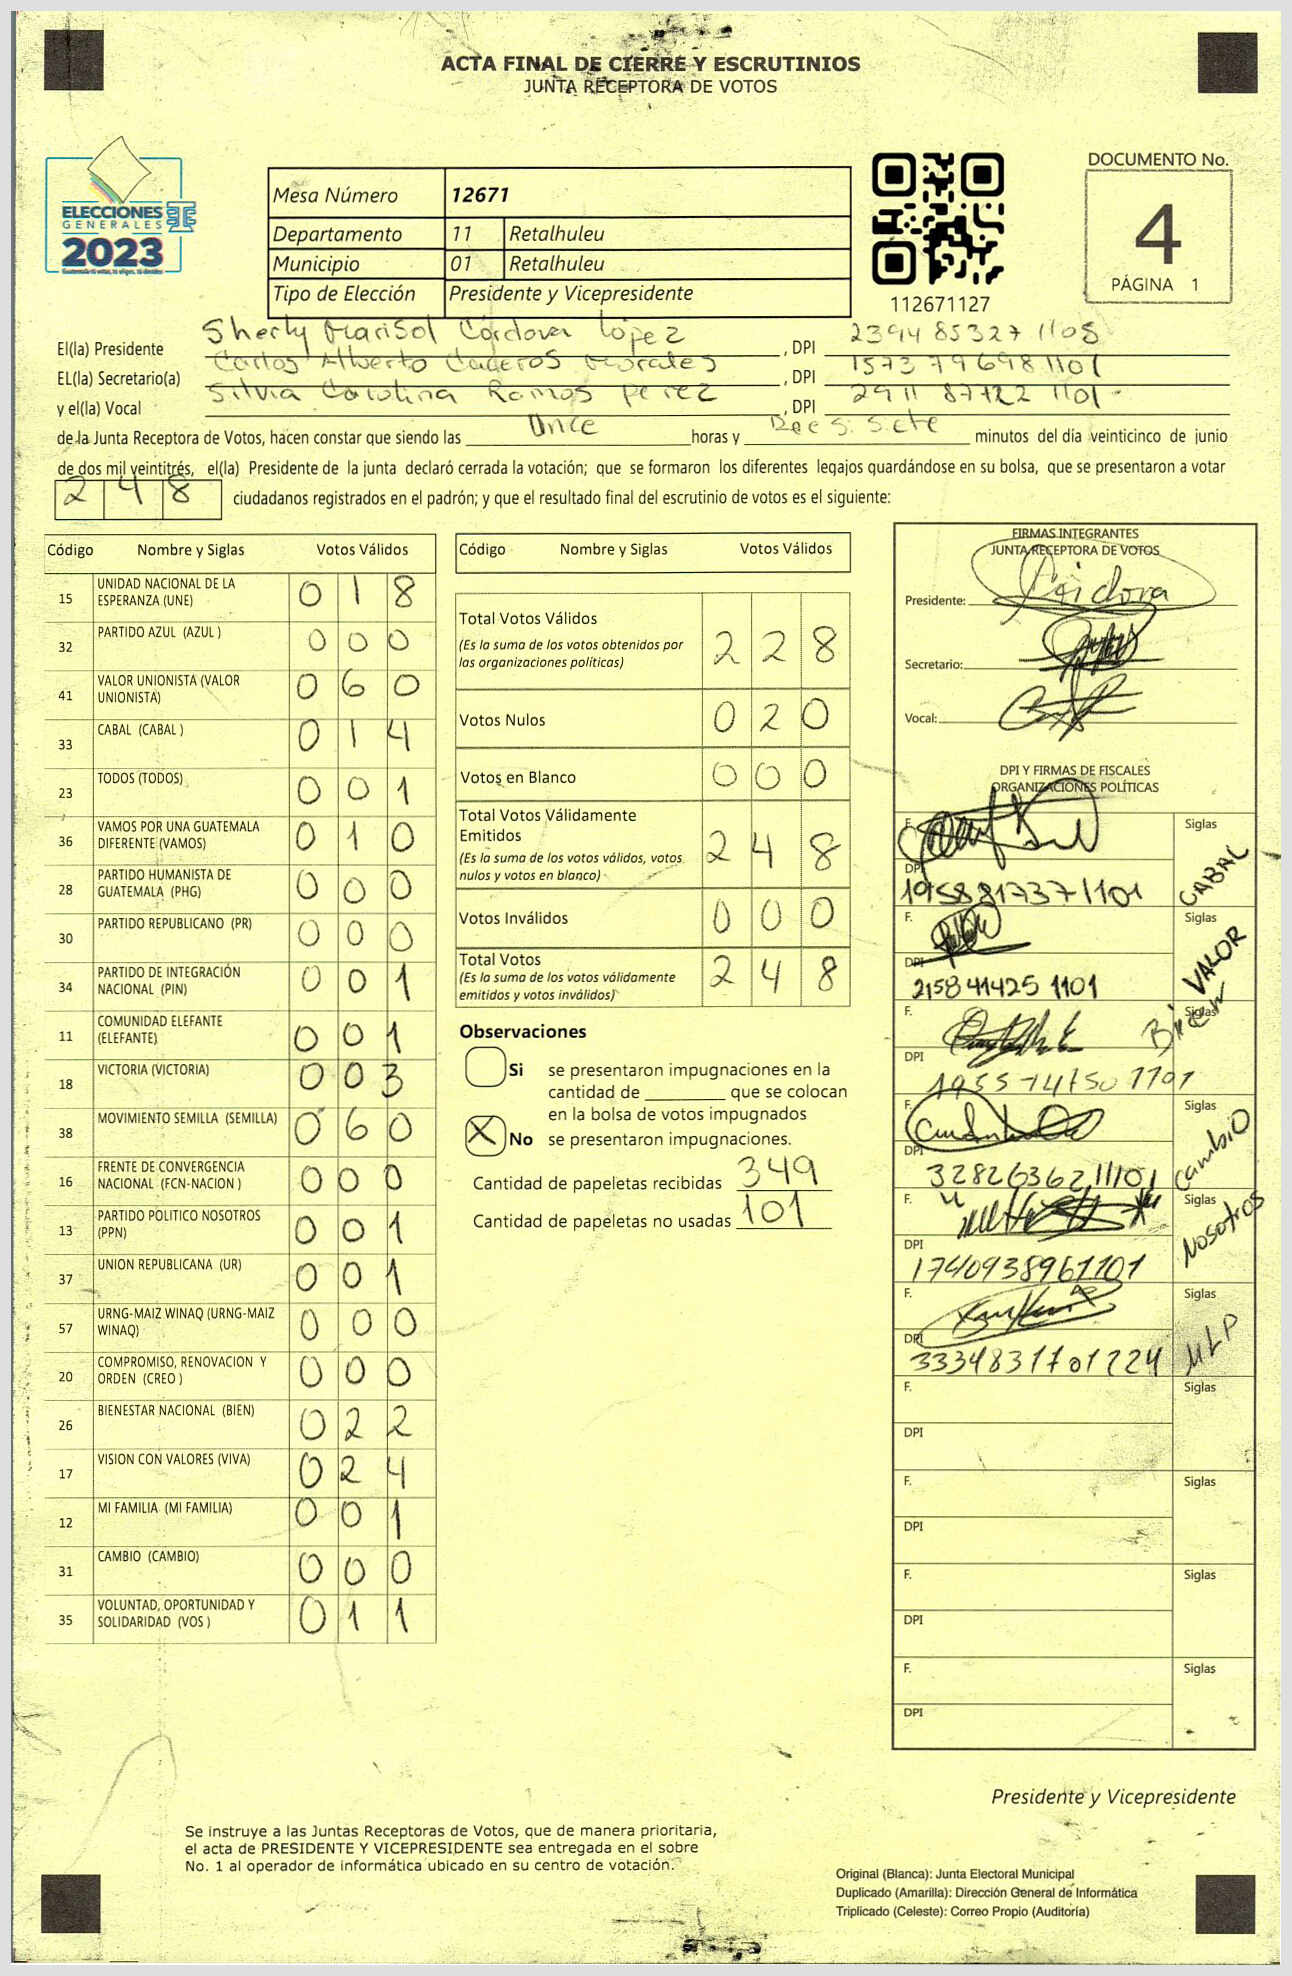 ACTA FINAL DE CIERRE Y ESCRUTINIOS
JUNTA RECEPTORA DE VOTOS
ELECCIONES
GENERALES
2023
Mesa Número 12671
Departamento 11 Retalhuleu
Municipio 01 Retalhuleu
Tipo de Elección Presidente y Vicepresidente
112671127
DOCUMENTO No.
4
PÁGINA 1
El(la) Presidente Sherly Marisol Córdova López , DPI 2394 85327 1108
EL(la) Secretario(a) Carlos Alberto Morales , DPI 1573 79698 1101
y el(la) Vocal Silvia Carolina Ramos Perez , DPI 2911 87122 1101
de la Junta Receptora de Votos, hacen constar que siendo las Once horas y minutos del día veinticinco de junio
de dos mil veintitrés, el(la) Presidente de la junta declaró cerrada la votación; que se formaron los diferentes legajos quardándose en su bolsa, que se presentaron a votar
248 ciudadanos registrados en el padrón; y que el resultado final del escrutinio de votos es el siguiente:
Código Nombre y Siglas Votos Válidos
15 UNIDAD NACIONAL DE LA ESPERANZA (UNE) 0 1 8
32 PARTIDO AZUL (AZUL ) 0 0 0
41 VALOR UNIONISTA (VALOR UNIONISTA) 0 6 0
33 CABAL (CABAL ) 0 1 4
23 TODOS (TODOS) 0 0 1
36 VAMOS POR UNA GUATEMALA DIFERENTE (VAMOS) 0 1 0
28 PARTIDO HUMANISTA DE GUATEMALA (PHG) 0 0 0
30 PARTIDO REPUBLICANO (PR) 0 0 0
34 PARTIDO DE INTEGRACIÓN NACIONAL (PIN) 0 0 1
11 COMUNIDAD ELEFANTE (ELEFANTE) 0 0 1
18 VICTORIA (VICTORIA) 0 0 3
38 MOVIMIENTO SEMILLA (SEMILLA) 0 6 0
16 FRENTE DE CONVERGENCIA NACIONAL (FCN-NACION ) 0 0 0
13 PARTIDO POLITICO NOSOTROS (PPN) 0 0 1
37 UNION REPUBLICANA (UR) 0 0 1
57 URNG-MAIZ WINAQ (URNG-MAIZ WINAQ) 0 0 0
20 COMPROMISO, RENOVACION Y ORDEN (CREO ) 0 0 0
26 BIENESTAR NACIONAL (BIEN) 0 2 2
17 VISION CON VALORES (VIVA) 0 2 4
12 MI FAMILIA (MI FAMILIA) 0 0 1
31 CAMBIO (CAMBIO) 0 0 0
35 VOLUNTAD, OPORTUNIDAD Y SOLIDARIDAD (VOS ) 0 1 1
Código Nombre y Siglas Votos Válidos
Total Votos Válidos 2 2 8
(Es la suma de los votos obtenidos por
las organizaciones políticas)
Votos Nulos 0 2 0
Votos en Blanco 0 0 0
Total Votos Válidamente
Emitidos 2 4 8
(Es la suma de los votos válidos, votos
nulos y votos en blanco)
Votos Inválidos 0 0 0
Total Votos 2 4 8
(Es la suma de los votos válidamente
emitidos y votos inválidos)
Observaciones
Si se presentaron impugnaciones en la
cantidad de ________ que se colocan
en la bolsa de votos impugnados
X No se presentaron impugnaciones.
Cantidad de papeletas recibidas 349
Cantidad de papeletas no usadas 101
FIRMAS INTEGRANTES
JUNTA RECEPTORA DE VOTOS
Presidente:
Secretario:
Vocal:
DPI Y FIRMAS DE FISCALES
ORGANIZACIONES POLÍTICAS
F. Siglas CABAL
DPI 1958817371101
F. Siglas VALOR
DPI 215841425 1101
F. Siglas Bien
DPI
F. Siglas Cambio
DPI 3282636211101
F. Siglas Nosotros
DPI 1740938961101
F. Siglas MLP
DPI 3334831701224
F. Siglas
DPI
F. Siglas
DPI
F. Siglas
DPI
F. Siglas
DPI
Presidente y Vicepresidente
Se instruye a las Juntas Receptoras de Votos, que de manera prioritaria,
el acta de PRESIDENTE Y VICEPRESIDENTE sea entregada en el sobre
No. 1 al operador de informática ubicado en su centro de votación.
Original (Blanca): Junta Electoral Municipal
Duplicado (Amarilla): Dirección General de Informática
Triplicado (Celeste): Correo Propio (Auditoría)